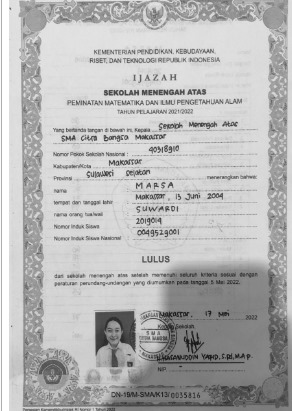 KEMENTERIAN PENDIDIKAN, KEBUDAYAAN,
RISET, DAN TEKNOLOGI REPUBLIK INDONESIA
IJAZAH
SEKOLAH MENENGAH ATAS
PEMINATAN MATEMATIKA DAN ILMU PENGETAHUAN ALAM
TAHUN PELAJARAN 2021/2022
Yang bertanda tangan di bawah ini, Kepala Sekolah Menengah Atas
SMA Citra Bangsa Makassar
Nomor Pokok Sekolah Nasional : 40318910
Kabupaten/Kota Makassar
Provinsi Sulawesi Selatan menerangkan bahwa:
nama MARSA
tempat dan tanggal lahir Makassar, 13 Juni 2004
nama orang tua/wali SUWARDI
Nomor Induk Siswa 2019014
Nomor Induk Siswa Nasional 0049529001
LULUS
dari sekolah menengah atas setelah memenuhi seluruh kriteria sesuai dengan
peraturan perundang-undangan yang diumumkan pada tanggal 5 Mei 2022.
Makassar, 17 Mei 2022
Kepala Sekolah,
SMA
NIP.
DN-19/M-SMA/K13/0035816